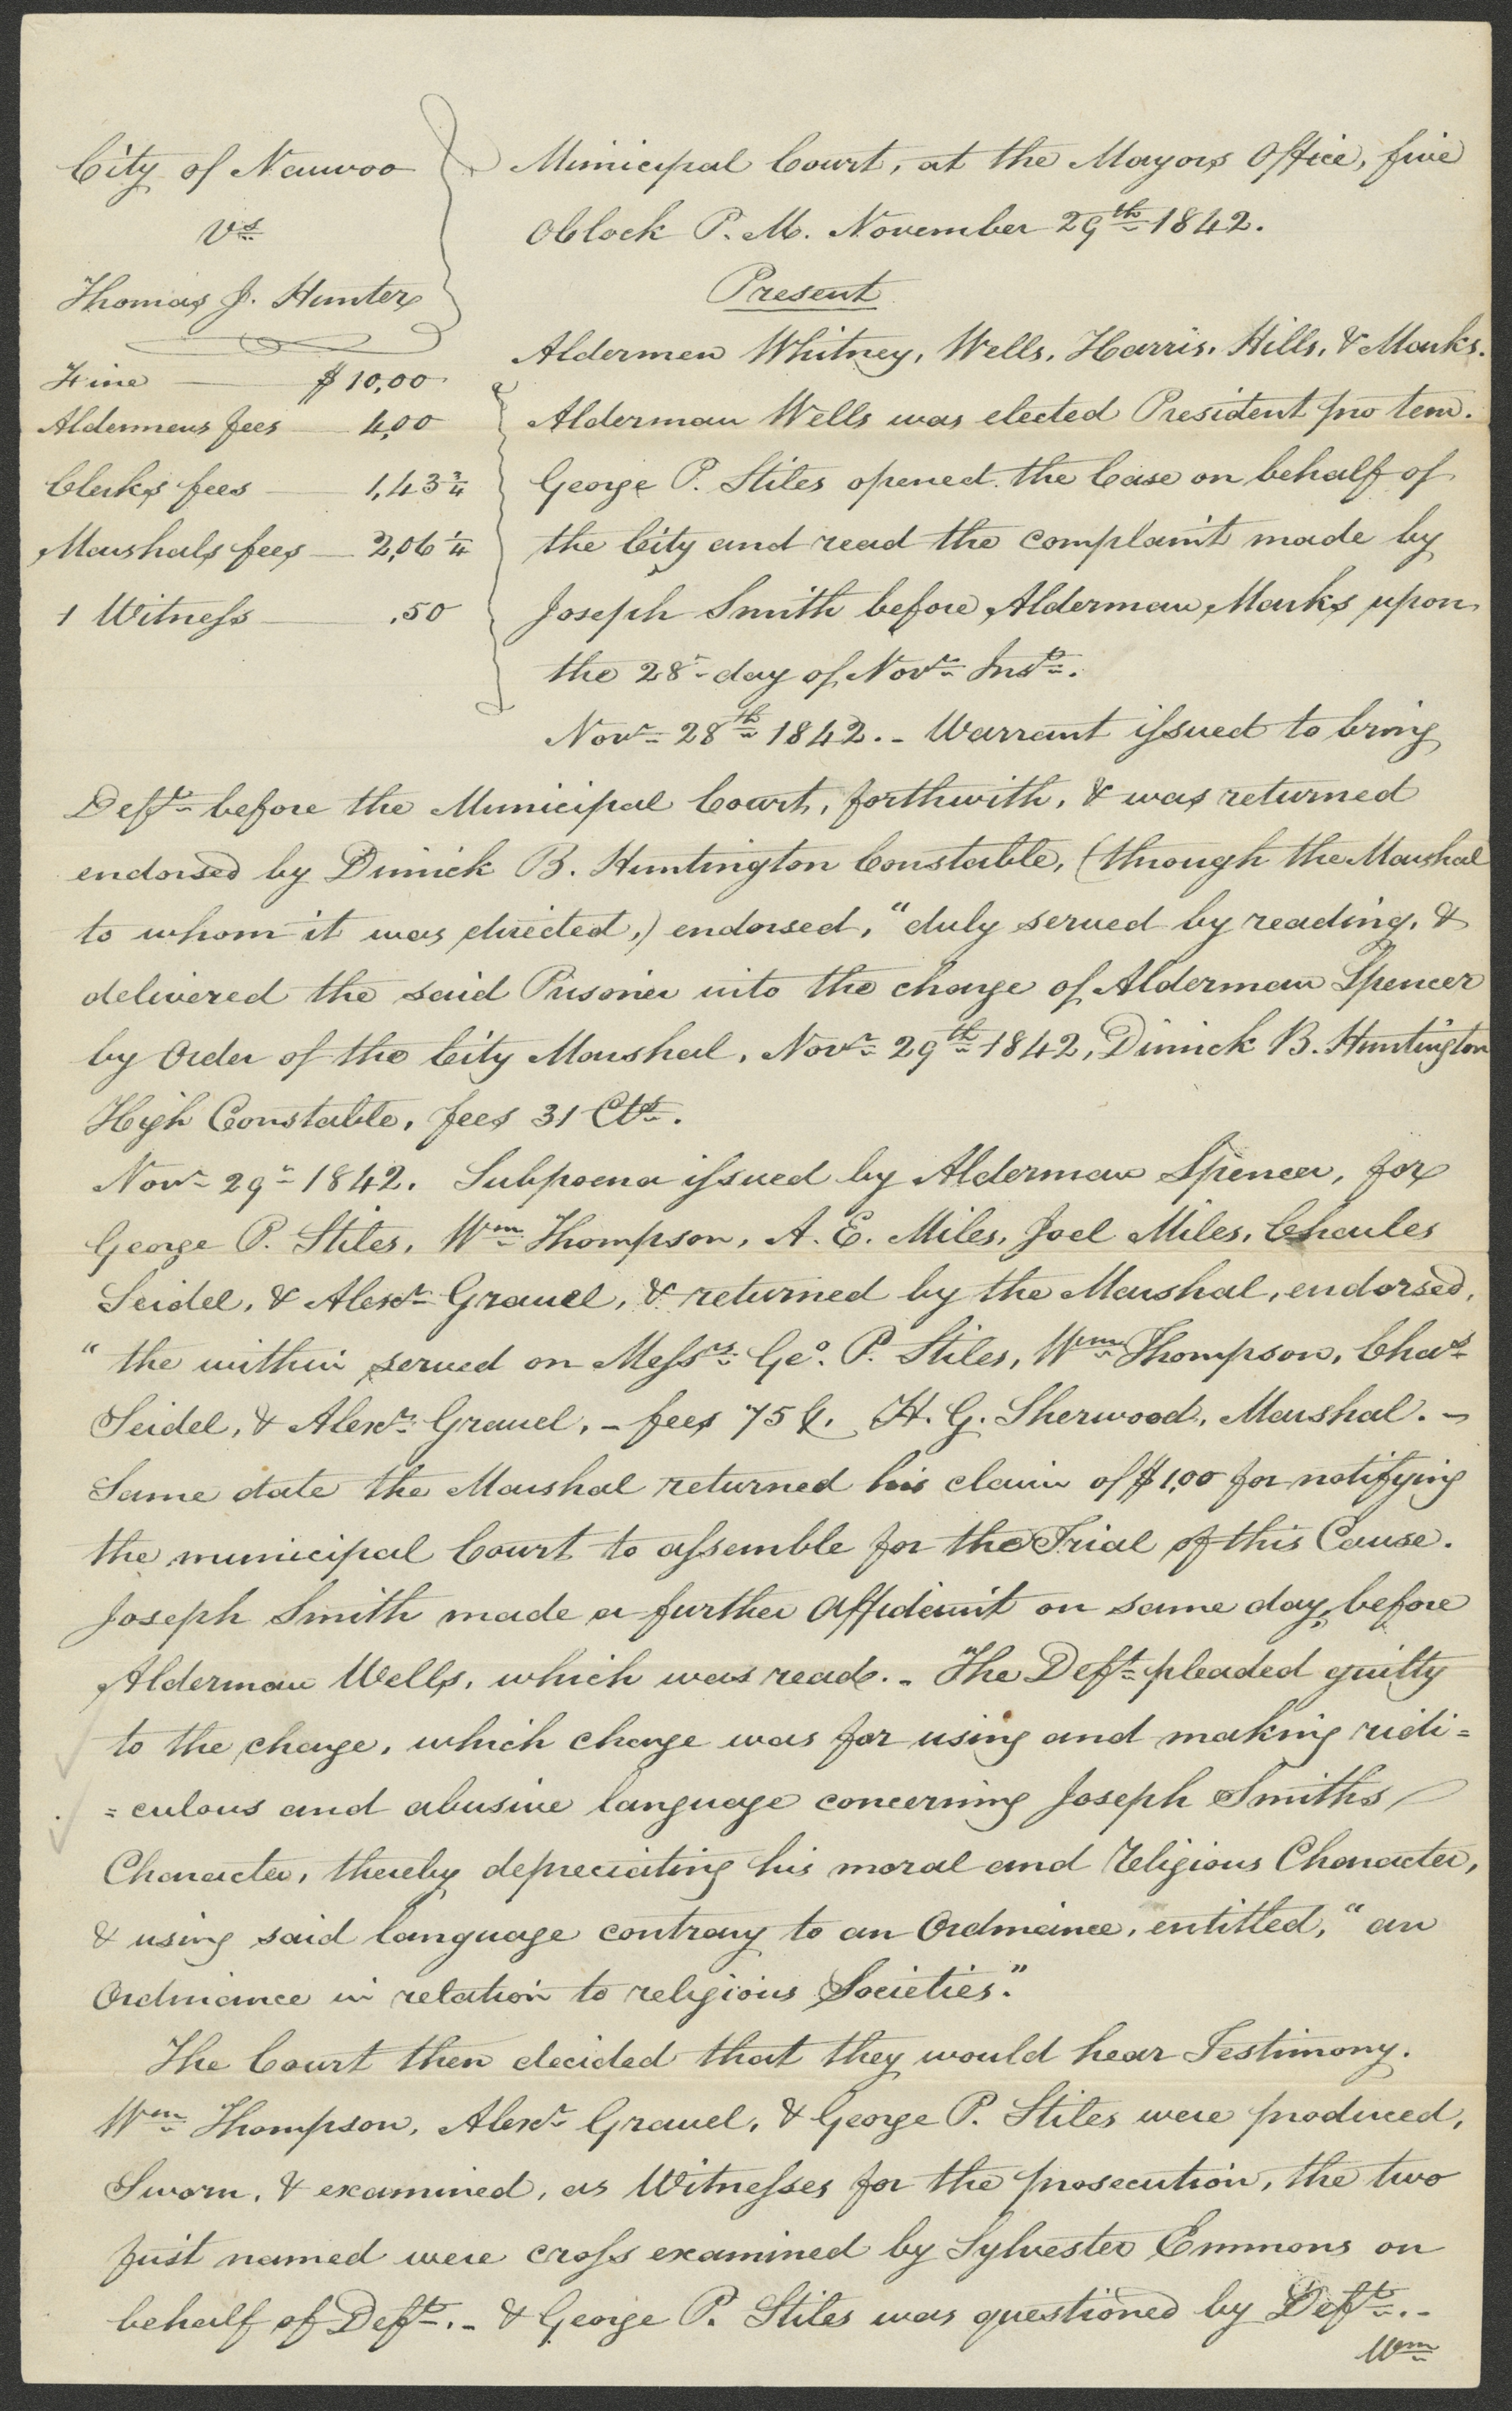 City of Nauvoo
Vs
Thomas J. Hunter
Fine — $10,00
Aldermens fees — 4,00
Clerks fees — 1,43 3/4
Marshals fees — 2,06 1/4
1 Witness — .50
Municipal Court, at the Mayors Office, five
OClock P.M. November 29th 1842.
Present
Aldermen Whitney, Wells, Harris, Hills, & Marks.
Alderman Wells was elected President pro tem.
George P. Stiles opened the Case on behalf of
the City and read the complaint made by
Joseph Smith before Alderman Marks upon
the 28th day of Novr Inst.
Novr 28th 1842. - Warrant issued to bring
Deft before the Municipal Court, forthwith, & was returned
endorsed by Dimick B. Huntington Constable, (through the Marshal
to whom it was directed,) endorsed, "duly served by reading, &
delivered the said Prisoner into the charge of Alderman Spencer
by Order of the City Marshal, Novr 29th 1842, Dimick B. Huntington
High Constable, fees 31 Cts.
Novr 29th 1842. Subpoena issued by Alderman Spencer, for
George P. Stiles, Wm Thompson, A. E. Miles, Joel Miles, Charles
Seidel, & Alexr Grauel, & returned by the Marshal, endorsed,
"the within served on Messrs Geo. P. Stiles, Wm Thompson, Chas
Seidel, & Alexr Grauel, - fees 75 ¢. H. G. Sherwood, Marshal. -
Same date the Marshal returned his claim of $1,00 for notifying
the municipal Court to assemble for the Trial of this Cause.
Joseph Smith made a further Affidavit on same day, before
Alderman Wells, which was read. - The Deft pleaded guilty
to the charge, which charge was for using and making ridi=
=culous and abusive language concerning Joseph Smiths
Character, thereby depreciating his moral and Religious Character,
& using said language contrary to an Ordinance, entitled, "an
Ordinance in relation to religious Societies."
The Court then decided that they would hear Testimony.
Wm Thompson, Alexr Grauel, & George P. Stiles were produced,
Sworn, & examined, as Witnesses for the prosecution, the two
first named were cross examined by Sylvester Emmons on
behalf of Deft. - & George P. Stiles was questioned by Deft. -
Wm